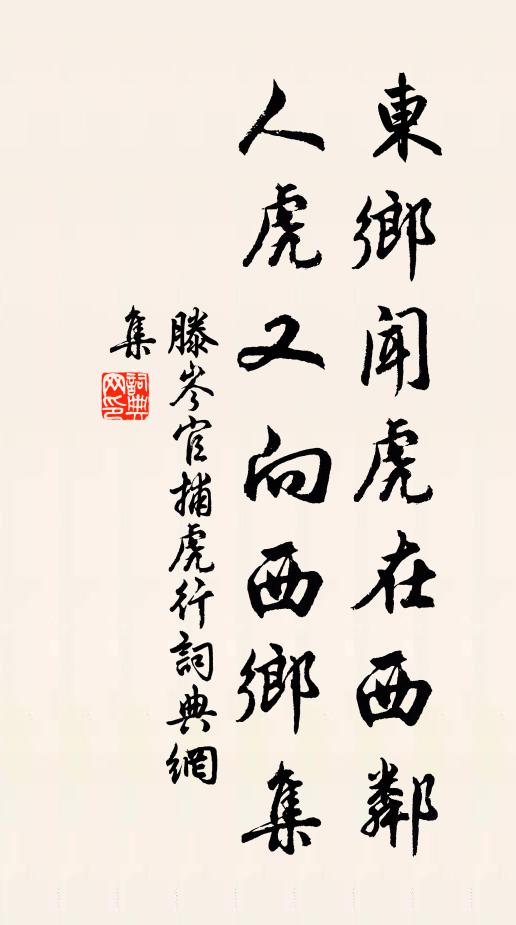 東鄉聞虎在西鄰
人虎又向西鄉集
滕岑官捕虎行詞典網
集
詞典
网印